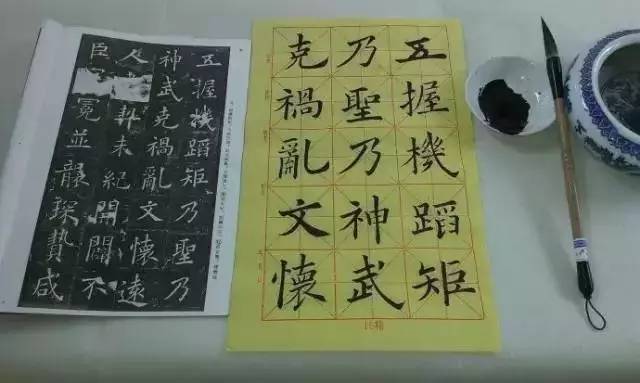 五握機蹈矩
乃聖乃神武
克禍亂文懷
16格
五握機蹈矩乃聖乃
神武克禍亂文懷遠
人契未紀開闢不
臣冕並襲琛贄咸